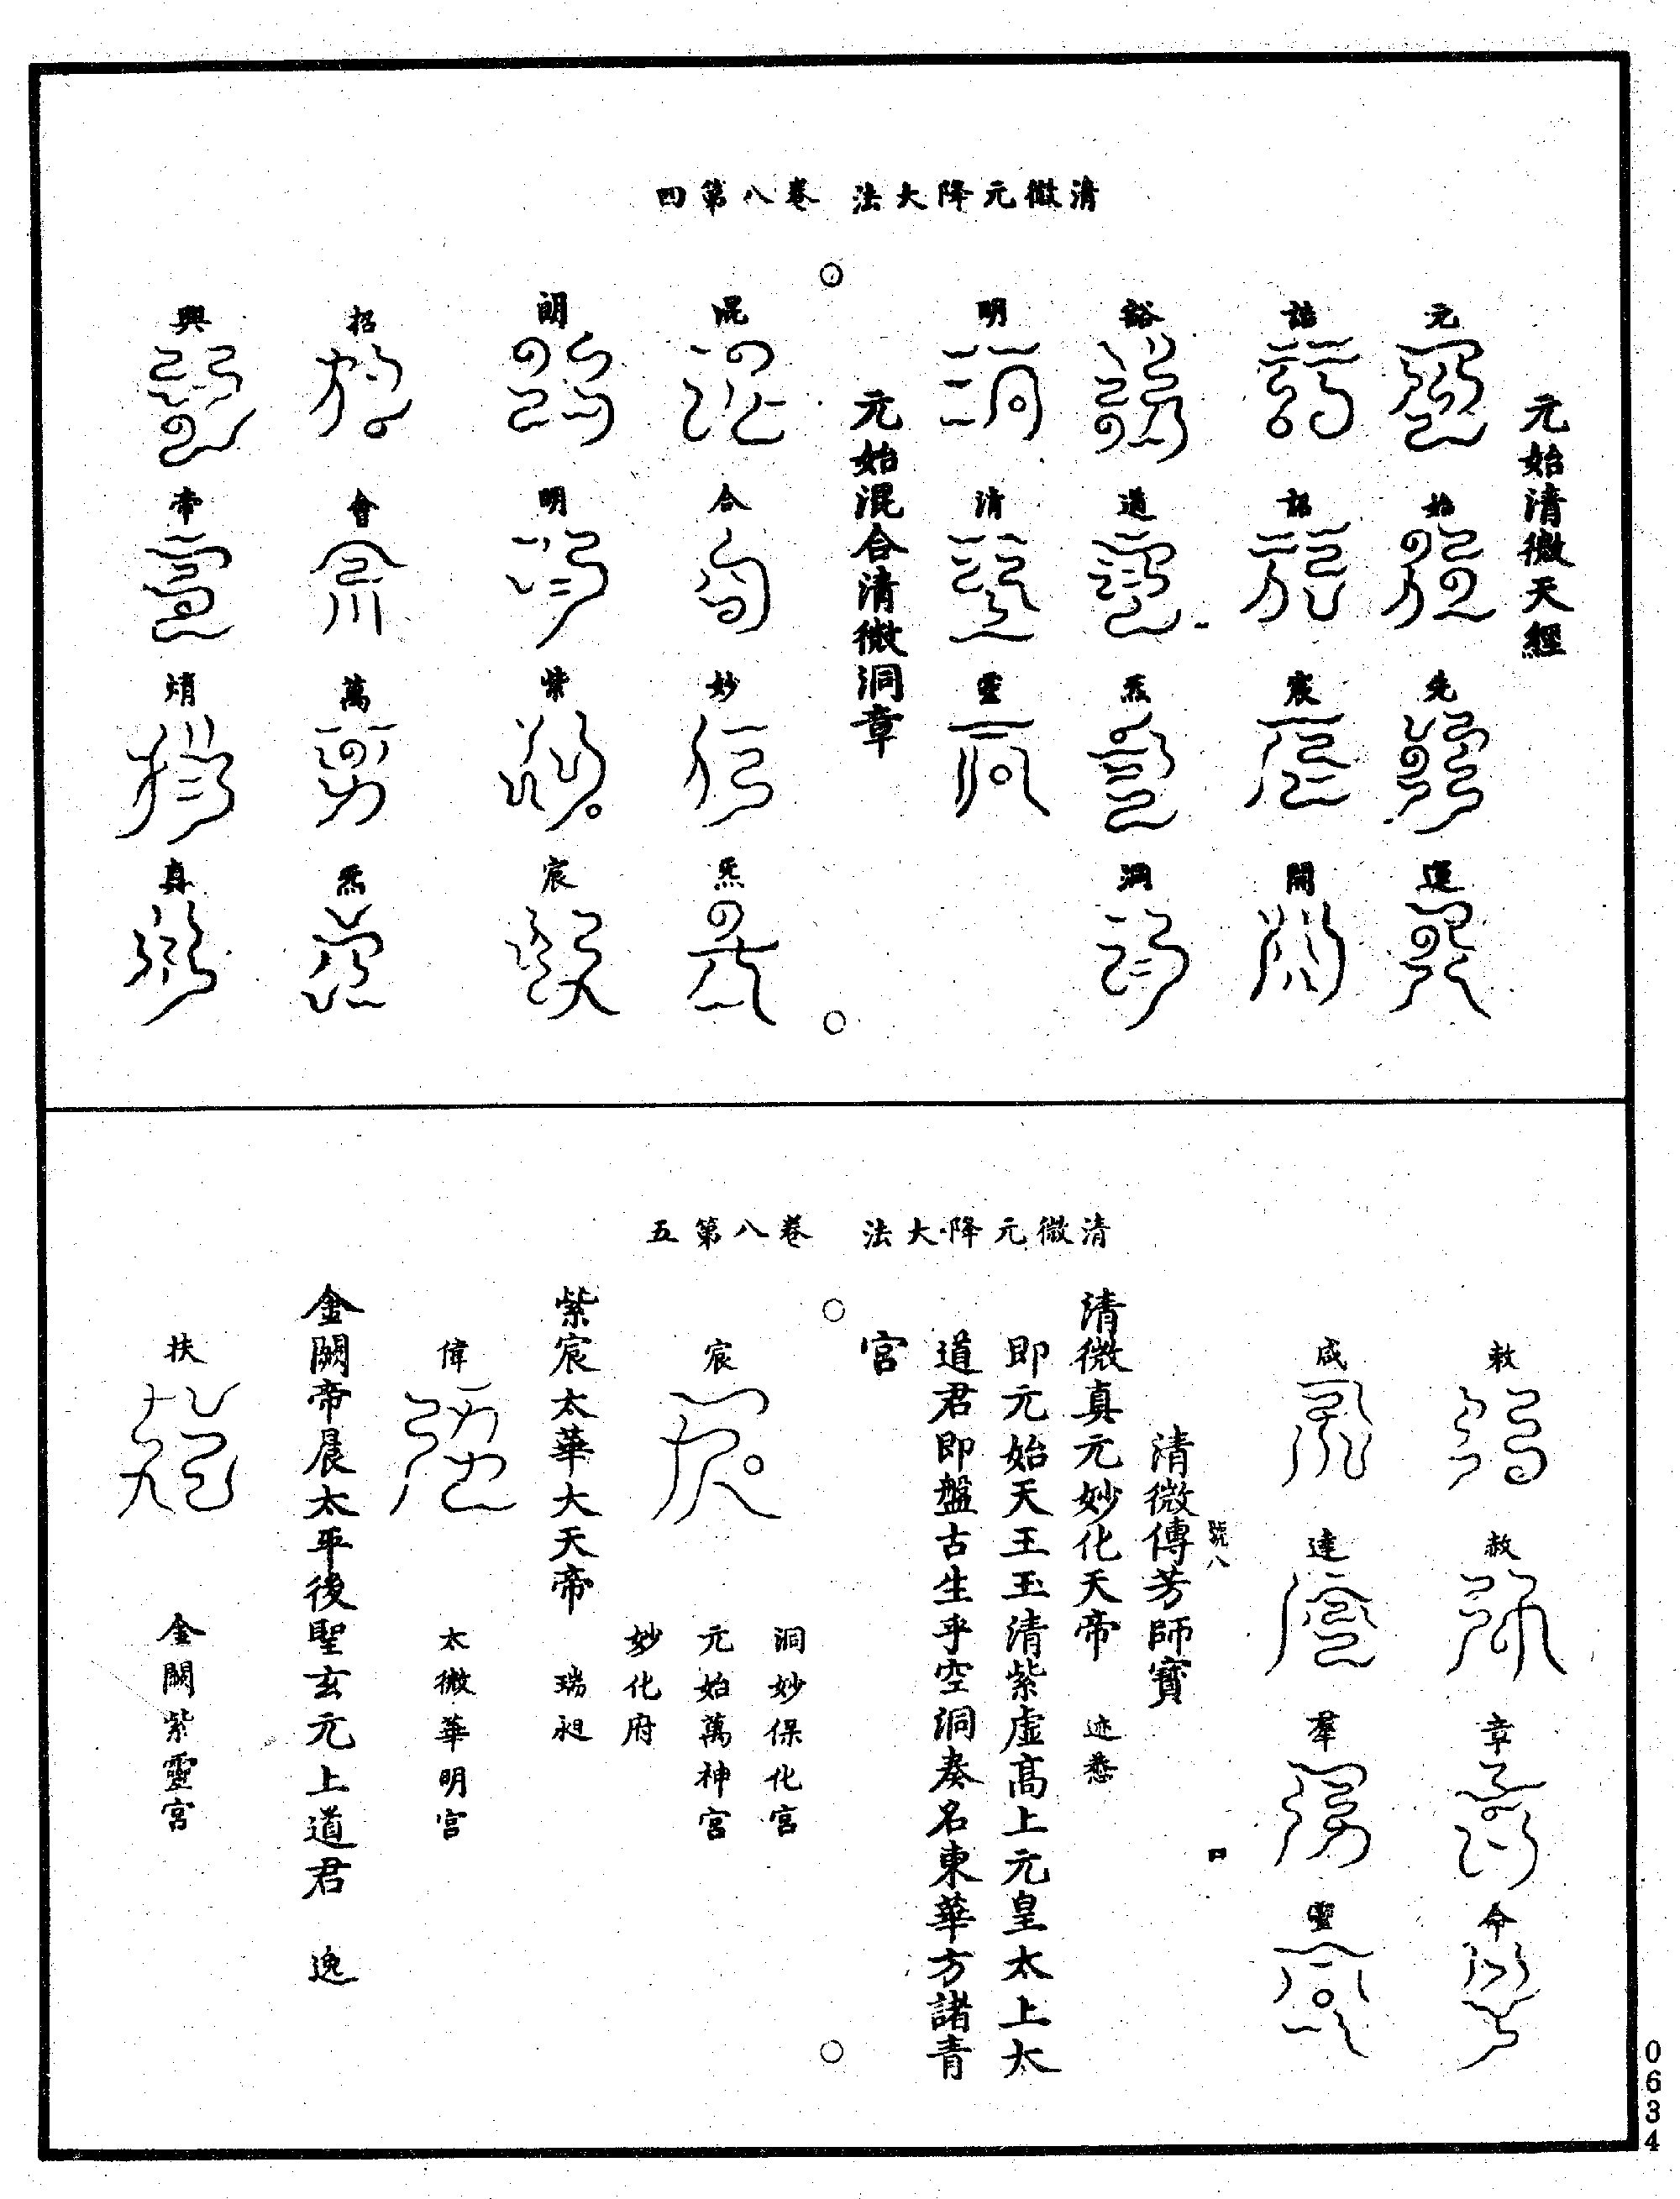 清微元降大法　卷八第四
元始清微天經
元始先運
誥詔宸開
豁道炁洞
明清靈
元始混合清微洞章
混合妙炁
朗明紫宸
招會萬炁
興帝焆真
清微元降大法　卷八第五
敕赦章命
咸達羣靈
號八　四
清微傳芳師寶
清微真元妙化天帝　迹懸
即元始天王玉清紫虛高上元皇太上太
道君即盤古生乎空洞奏名東華方諸青
宮
宸　洞妙保化宮
元始萬神宮
妙化府
紫宸太華大天帝　瑞昶
偉　太微華明宮
金闕帝晨太平後聖玄元上道君　逸
扶　金闕紫靈宮
0634